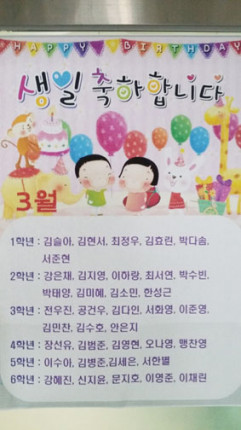 HAPPY BIRTHDAY
생일 축하합니다
3월
1학년 : 김슬아, 김현서, 최정우, 김효린, 박다솜,
서준현
2학년 : 강은재, 김지영, 이하랑, 최서연, 박수빈,
박태양, 김미혜, 김소민, 한성근
3학년 : 전우진, 공건우, 김다인, 서화영, 이준영,
김민찬, 김수호, 안은지
4학년 : 장선유, 김범준, 김영현, 오나영, 맹찬영
5학년 : 이수아, 김병준,김세은, 서한별
6학년 : 강혜진, 신지윤, 문지호, 이영준, 이채린